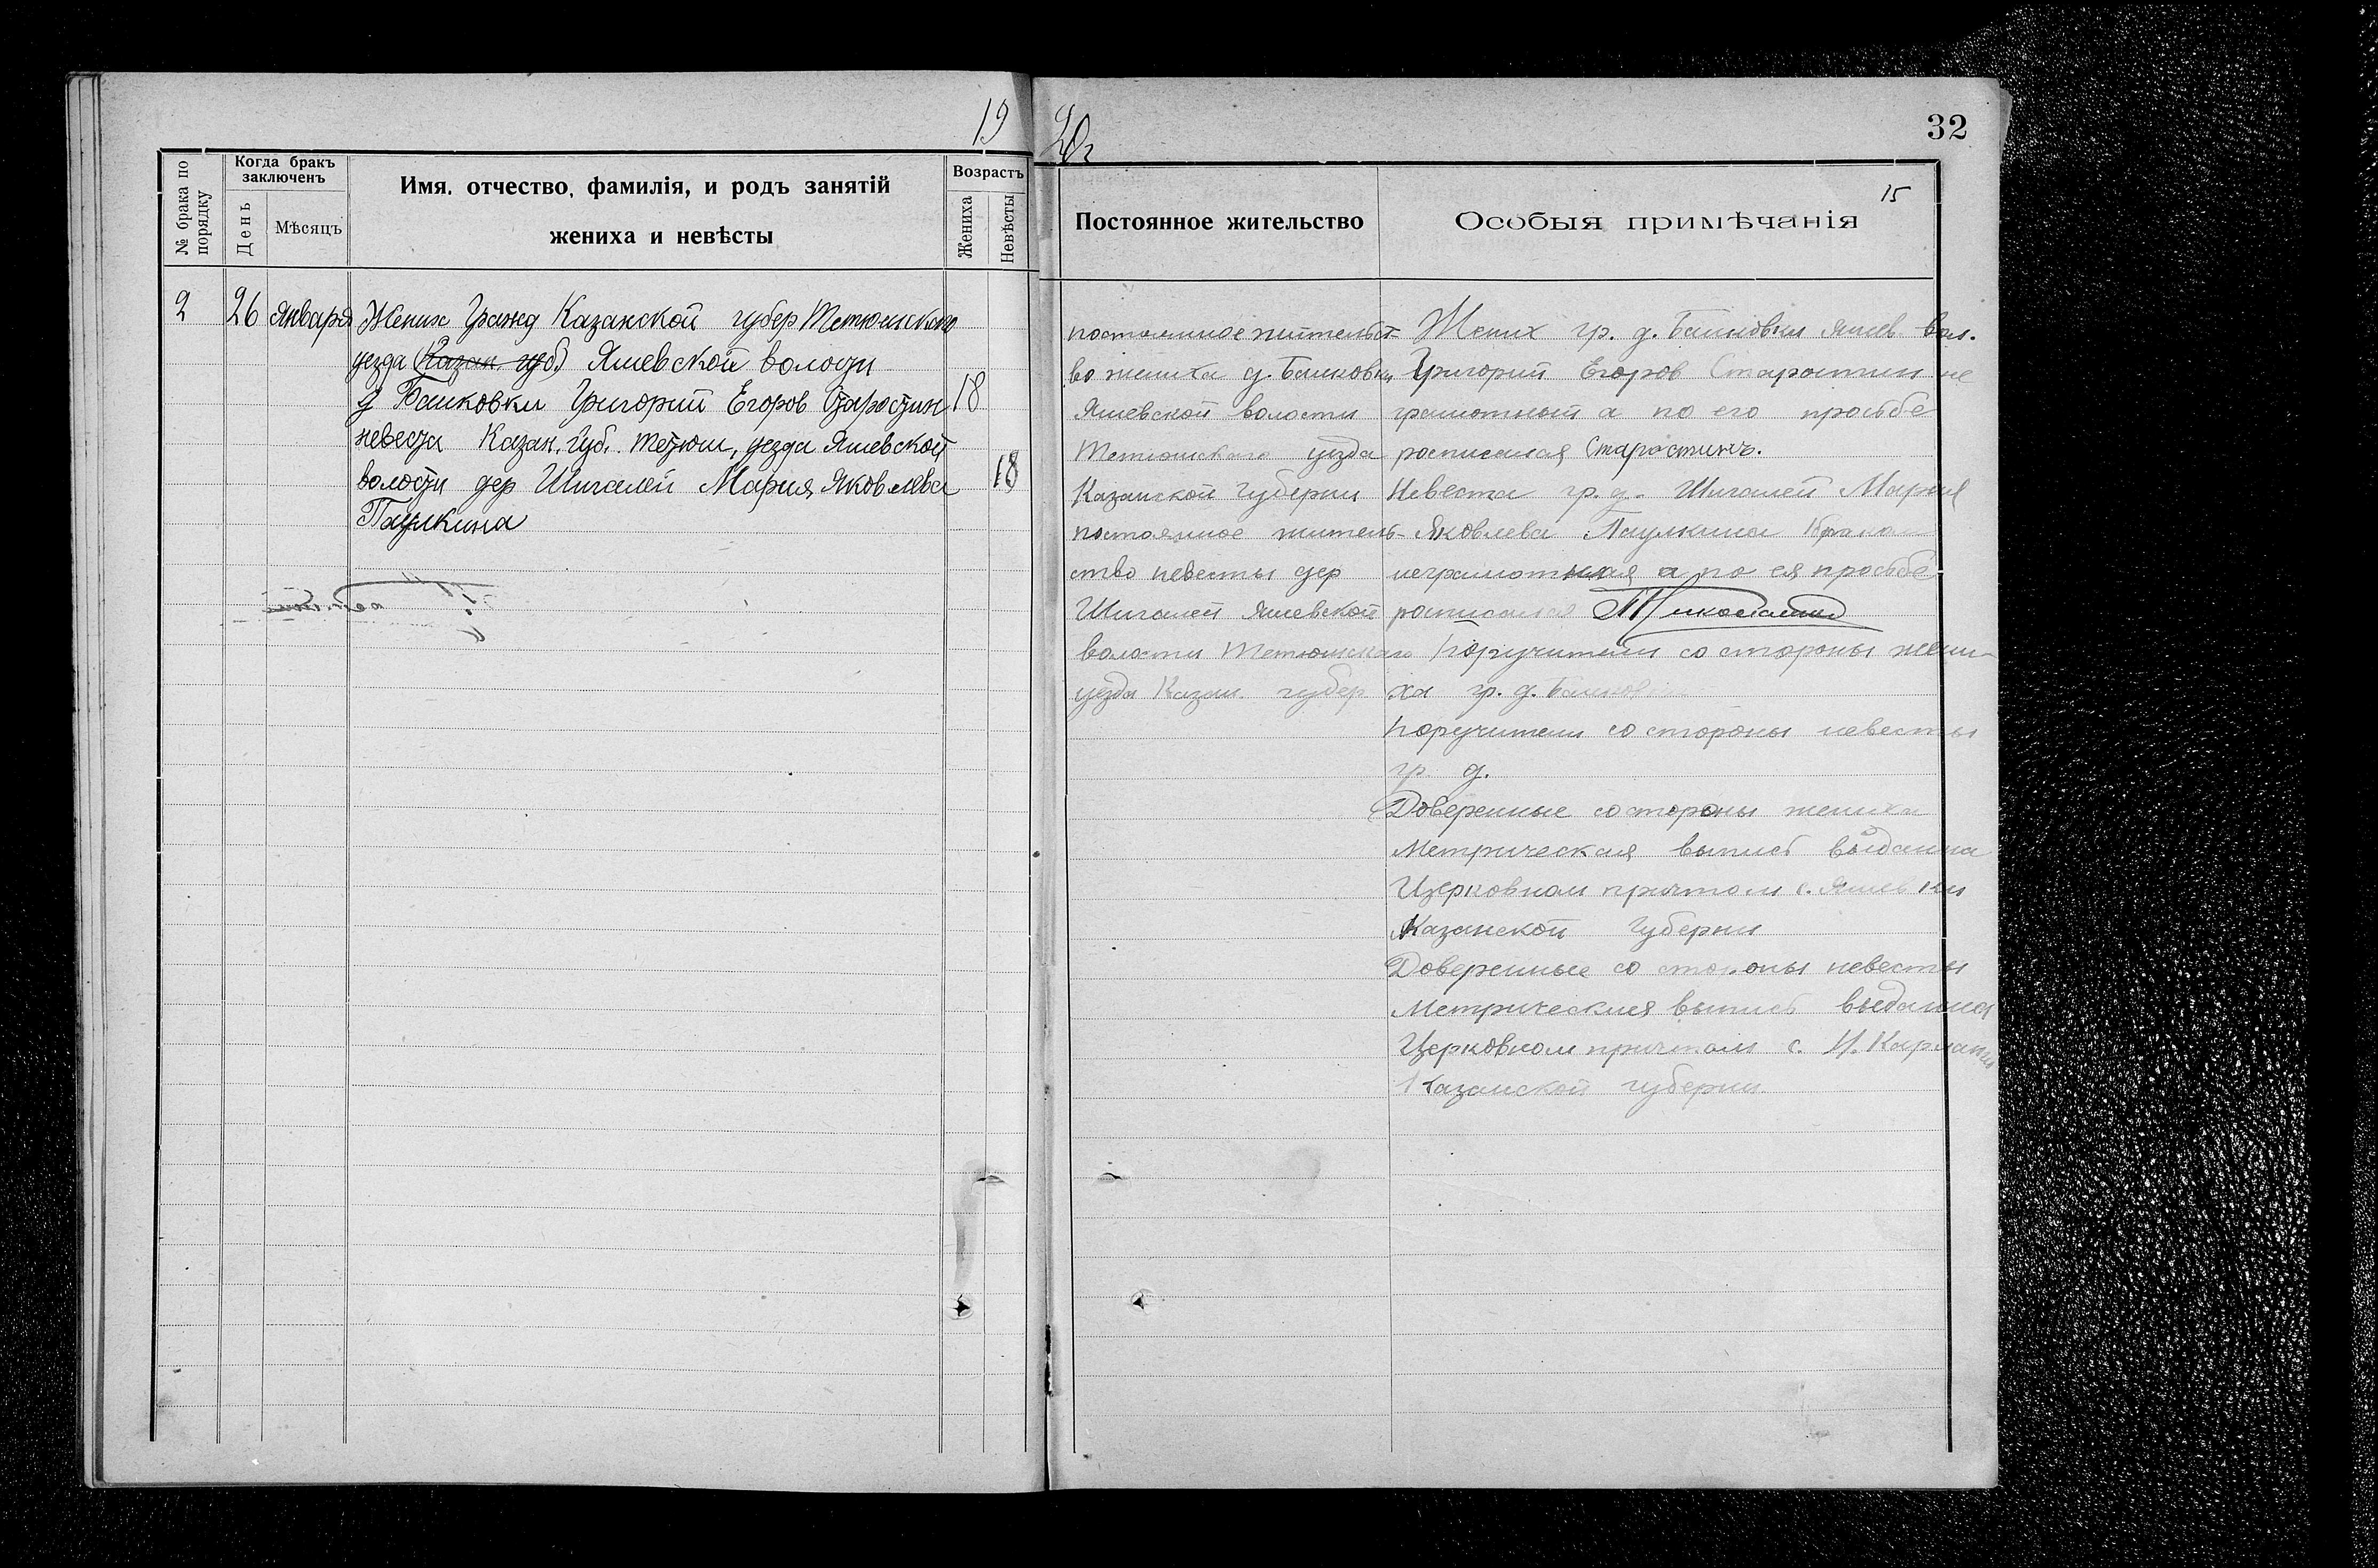 19 20г
32
15
№ брака по порядку
Когда бракъ заключенъ
День
Мѣсяцъ
Имя, отчество, фамилія, и родъ занятій
жениха и невѣсты
Возрастъ
Жениха
Невѣсты
2 26 января Жених Гражд Казанской губер Тетюшского
уезда (Казан. губ.) Яшевской волости
д Башковки Григорий Егоров Старостин 18
невеста Казан. Губ. Тетюш. уезда Яшевской
волости дер Шигалей Мария Яковлева 18
Паулкина
Постоянное жительство
постоянное жительст-
во жениха д. Башковки
Яшевской волости
Тетюшского уезда
Казанской Губернии
постоянное житель-
ство невесты дер
Шигалей Яшевской
волости Тетюшскаго
уезда Казан. губер
Особыя примѣчанія
Жених гр. д. Башковки Яшев. вол.
Григорий Егоров Старостин не
грамотный а по его просьбе
росписался Старостинъ.
Невеста гр. д. Шигалей Мария
Яковлева Паулкина
неграмотная а по ея просьбе
росписался
Поручители со стороны жени-
ха гр. д. Башков
Поручители со стороны невесты
гр. д.
Доверенные со стороны жениха
Метрическая выпись выданна
Церковном притом с. Яшевки
Казанской Губернии
Доверенные со стороны невесты
Метрическия выпись выданна
Церковном притом с.
Казанской губернии.